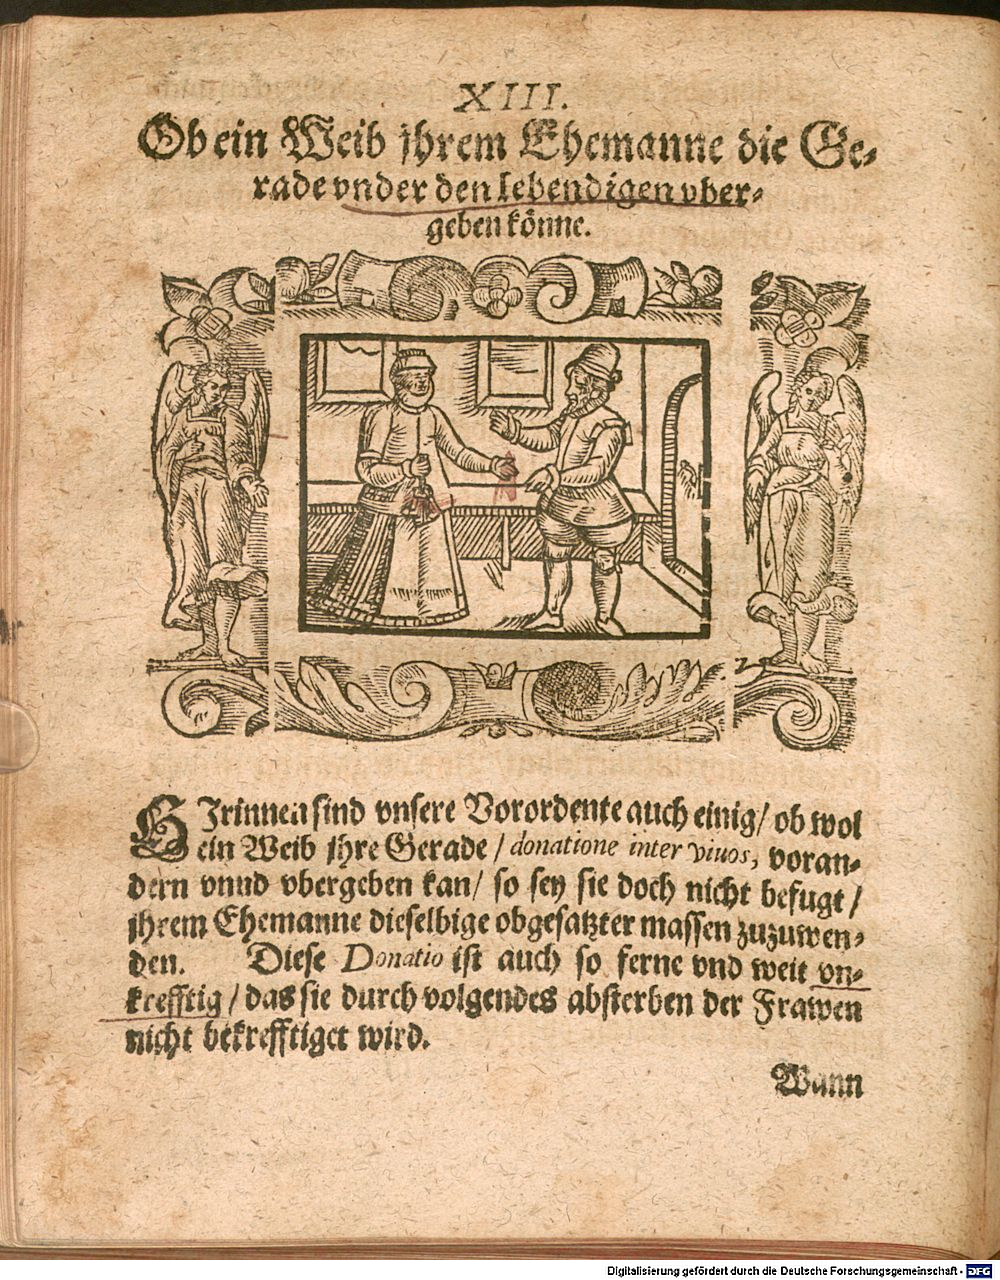 XIII.
Ob ein Weib jhrem Ehemanne die Ge-
rade vnder den lebendigen vber-
geben könne.
HJrinnen sind vnsere Vorordente auch einig/ ob wol
ein Weib jhre Gerade / donatione inter viuos, voran-
dern vnnd vbergeben kan/ so sey sie doch nicht befugt /
jhrem Ehemanne dieselbige obgesatzter massen zuzuwen-
den. Diese Donatio ist auch so ferne vnd weit vn-
krefftig / das sie durch volgendes absterben der Frawen
nicht bekrefftiget wird.
Wann
Digitalisierung gefördert durch die Deutsche Forschungsgemeinschaft - DFG